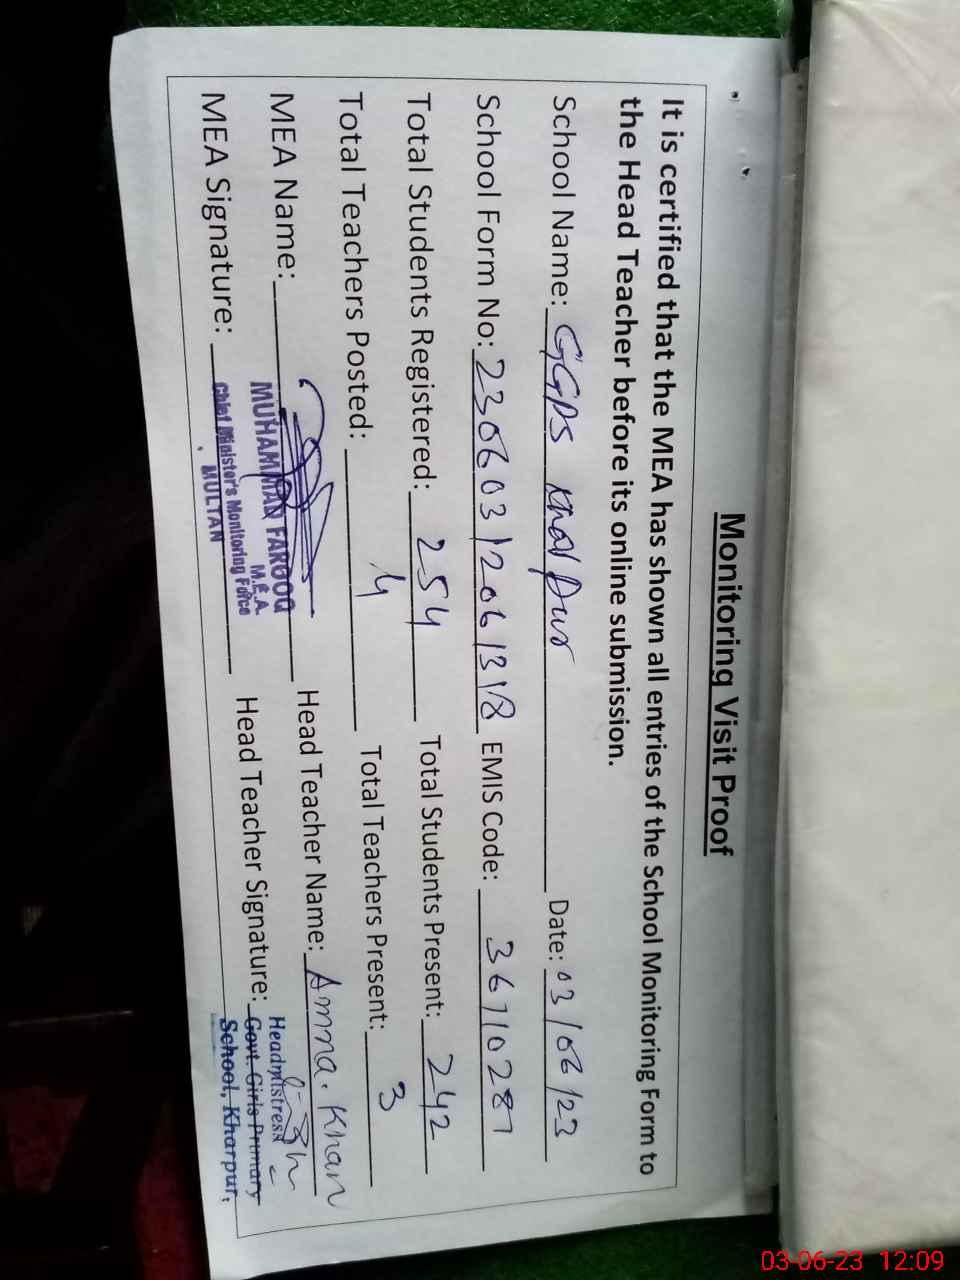 Monitoring Visit Proof
It is certified that the MEA has shown all entries of the School Monitoring Form to
the Head Teacher before its online submission.
School Name: GGPS Kharpur Date: 03/06/23
School Form No: 23060312061318 EMIS Code: 36710281
Total Students Registered: 254 Total Students Present: 242
Total Teachers Posted: 4 Total Teachers Present: 3
MEA Name: Head Teacher Name: Amna. Khan
MEA Signature: Head Teacher Signature:
MUHAMMAD FAROOQ
M.E.A.
Chief Minister's Monitoring Force
MULTAN
Headmistress
Govt. Girls Primary
School, Kharpur,
03-06-23 12:09